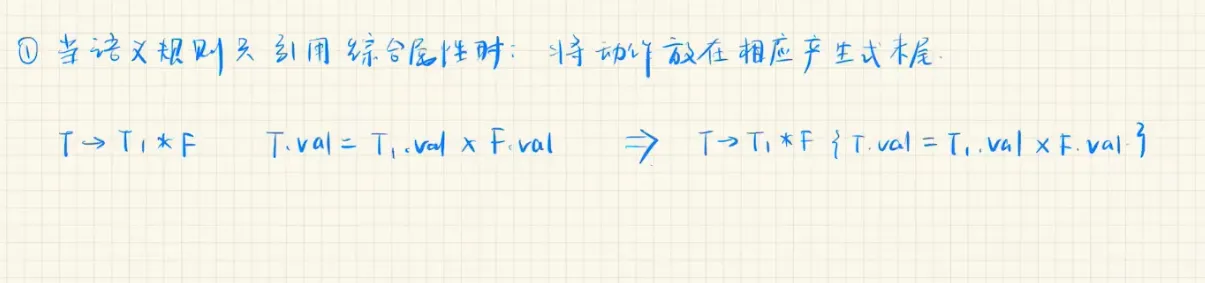 ① 当语义规则只引用综合属性时：将动作放在相应产生式末尾.
T → T₁ * F T.val = T₁.val × F.val ⇒ T → T₁ * F { T.val = T₁.val × F.val }